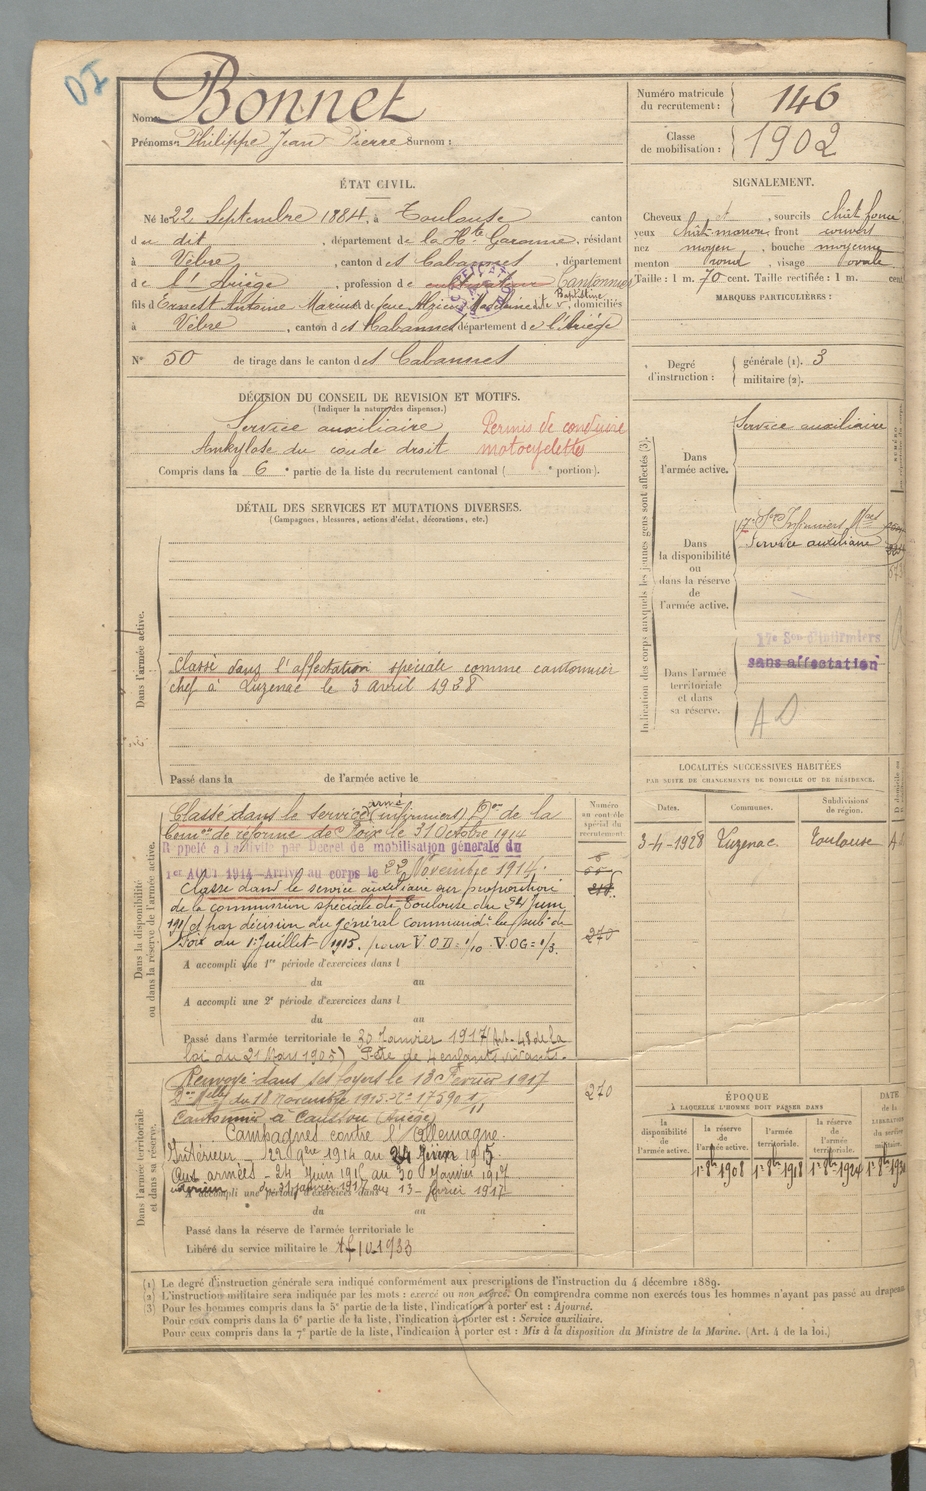 DI
Nom: Bonnet
Prénoms: Philippe Jean Pierre Surnom :
Numéro matricule
du recrutement : 146
Classe
de mobilisation : 1902
ÉTAT CIVIL.
Né le 22 Septembre 1884, à Toulouse canton
du dit , département de la Hte Garonne, résidant
à Vèbre , canton des Cabannes , département
de l'Ariège , profession de cultivateur Cantonnier
fils d'Ernest Antoine Marius et de Baptistine , domiciliés
à Vèbre , canton des Cabannes département de l'Ariège
N° 50 de tirage dans le canton des Cabannes
SIGNALEMENT.
Cheveux , sourcils chât foncé
yeux chât-marron, front couvert
nez moyen , bouche moyenne
menton rond , visage ovale
Taille : 1 m. 70 cent. Taille rectifiée : 1 m. cent
MARQUES PARTICULIÈRES :
Degré
d'instruction :
générale (1). 3
militaire (2).
DÉCISION DU CONSEIL DE REVISION ET MOTIFS.
(Indiquer la nature des dispenses.)
Service auxiliaire
Ankylose du coude droit
Permis de conduire
motocyclettes
Compris dans la 6e partie de la liste du recrutement cantonal ( e portion).
DÉTAIL DES SERVICES ET MUTATIONS DIVERSES.
(Campagnes, blessures, actions d'éclat, décorations, etc.)
Dans l'armée active.
Classé dans l'affectation spéciale comme cantonnier
chef à Luzenac le 3 avril 1928
Passé dans la de l'armée active le
Indication des corps auxquels les jeunes gens sont affectés (3).
Dans
l'armée active.
Service auxiliaire
Dans
la disponibilité
ou
dans la réserve
de
l'armée active.
17e Son Infirmiers Mres
Service auxiliaire
Dans l'armée
territoriale
et dans
sa réserve.
17e Son d'Infirmiers
sans affectation
AD
Dans la disponibilité
ou dans la réserve de l'armée active.
Classé dans le service armé (infirmiers) Don de la
Comon de réforme de Foix le 31 Octobre 1914
Rappelé à l'activité par Décret de mobilisation générale du
1er Août 1914 - Arrivé au corps le 22 Novembre 1914.
Classé dans le service auxiliaire sur proposition
de la commission spéciale de Toulouse du 24 Juin
1915 et par décision du Général Commandt la subd. de
Foix du 1 Juillet 1915. pour V.O.D = 1/10 V.O.G = 1/3.
A accompli une 1re période d'exercices dans l
du au
A accompli une 2e période d'exercices dans l
du au
Passé dans l'armée territoriale le 30 Janvier 1917 (Art. 48 de la
loi du 21 Mars 1905) Père de 4 enfants vivants.
Numéro
au contrôle
spécial du
recrutement.
270
LOCALITÉS SUCCESSIVES HABITÉES
PAR SUITE DE CHANGEMENTS DE DOMICILE OU DE RÉSIDENCE.
Dates. Communes. Subdivisions
de région.
3-4-1928 Luzenac. Toulouse
Dans l'armée territoriale
et dans sa réserve.
Renvoyé dans ses foyers le 13 Février 1917
Don Mlle du 18 novembre 1915. N° 17590 1/11
Cantonnier à Caussou (Ariège)
Campagnes contre l'Allemagne.
Intérieur - 22 9bre 1914 au 24 Juin 1915
Aux armées - 24 Juin 1915 au 30 Janvier 1917
Intérieur du 31 janvier 1917 au 13 - février 1917
A accompli une période d'exercices dans
du au
Passé dans la réserve de l'armée territoriale le
Libéré du service militaire le 1933
270
ÉPOQUE
À LAQUELLE L'HOMME DOIT PASSER DANS
DATE
de la
LIBÉRATION
du service
militaire.
la
disponibilité
de
l'armée active.
la réserve
de
l'armée active.
l'armée
territoriale.
la réserve
de
l'armée
territoriale.
1er 8bre 1908 1er 8bre 1918 1er 8bre 1924
(1) Le degré d'instruction générale sera indiqué conformément aux prescriptions de l'Instruction du 4 décembre 1889.
(2) L'instruction militaire sera indiquée par les mots : exercé ou non exercé. On comprendra comme non exercés tous les hommes n'ayant pas passé au drapeau
(3) Pour les hommes compris dans la 5e partie de la liste, l'indication à porter est : Ajourné.
Pour ceux compris dans la 6e partie de la liste, l'indication à porter est : Service auxiliaire.
Pour ceux compris dans la 7e partie de la liste, l'indication à porter est : Mis à la disposition du Ministre de la Marine. (Art. 4 de la loi.)